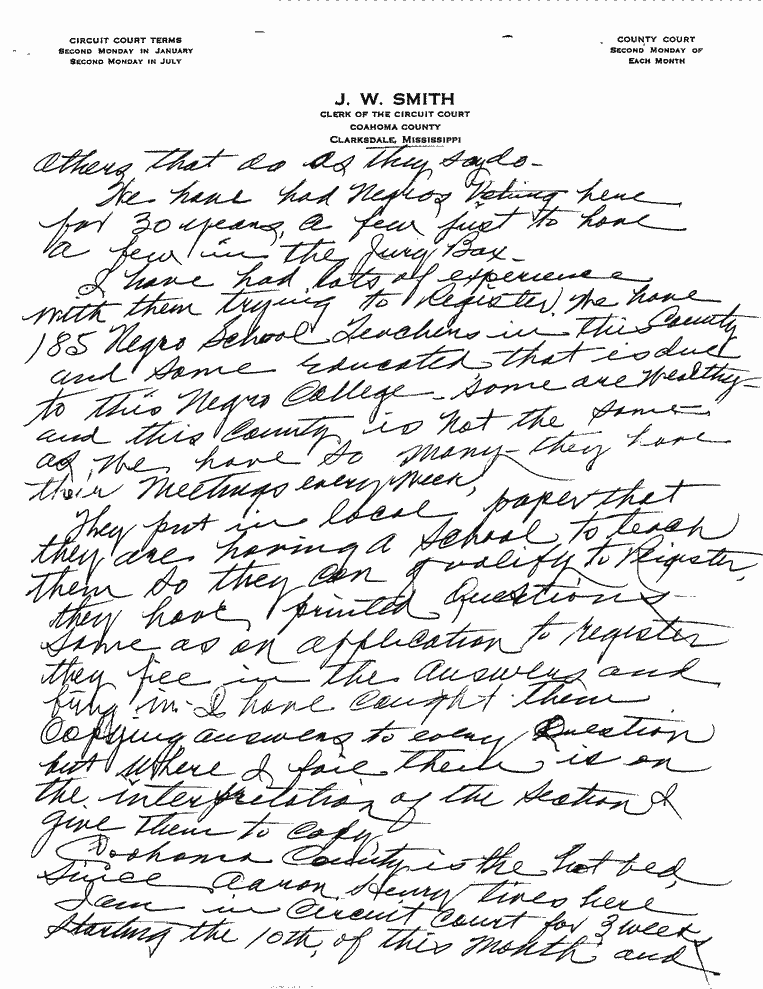 CIRCUIT COURT TERMS
SECOND MONDAY IN JANUARY
SECOND MONDAY IN JULY
COUNTY COURT
SECOND MONDAY OF
EACH MONTH
J. W. SMITH
CLERK OF THE CIRCUIT COURT
COAHOMA COUNTY
CLARKSDALE, MISSISSIPPI
Others that do as they say do-
We have had Negros Voting here
for 30 years, a few just to have
a few in the Jury Box-
I have had lots of experience
with them trying to Register. We have
185 Negro School Teachers in this County
and some Educated, that is due
to this Negro College- some are Wealthy-
and this County is not the same
as We have so many- they have
their Meetings every Week,
They put in local paper that
they are having a School to teach
them so they can qualify to Register,
they have printed Questions-
same as on application to register
they fill in the answers and
bring in- I have caught them
Copying answers to every Question
but Where I fail them is on
the interpretation of the Section I
give them to copy
Coahoma County is the hot bed,
since Aaron Henry lives here
I am in Circuit Court for 3 weeks
starting the 10th, of this Month and